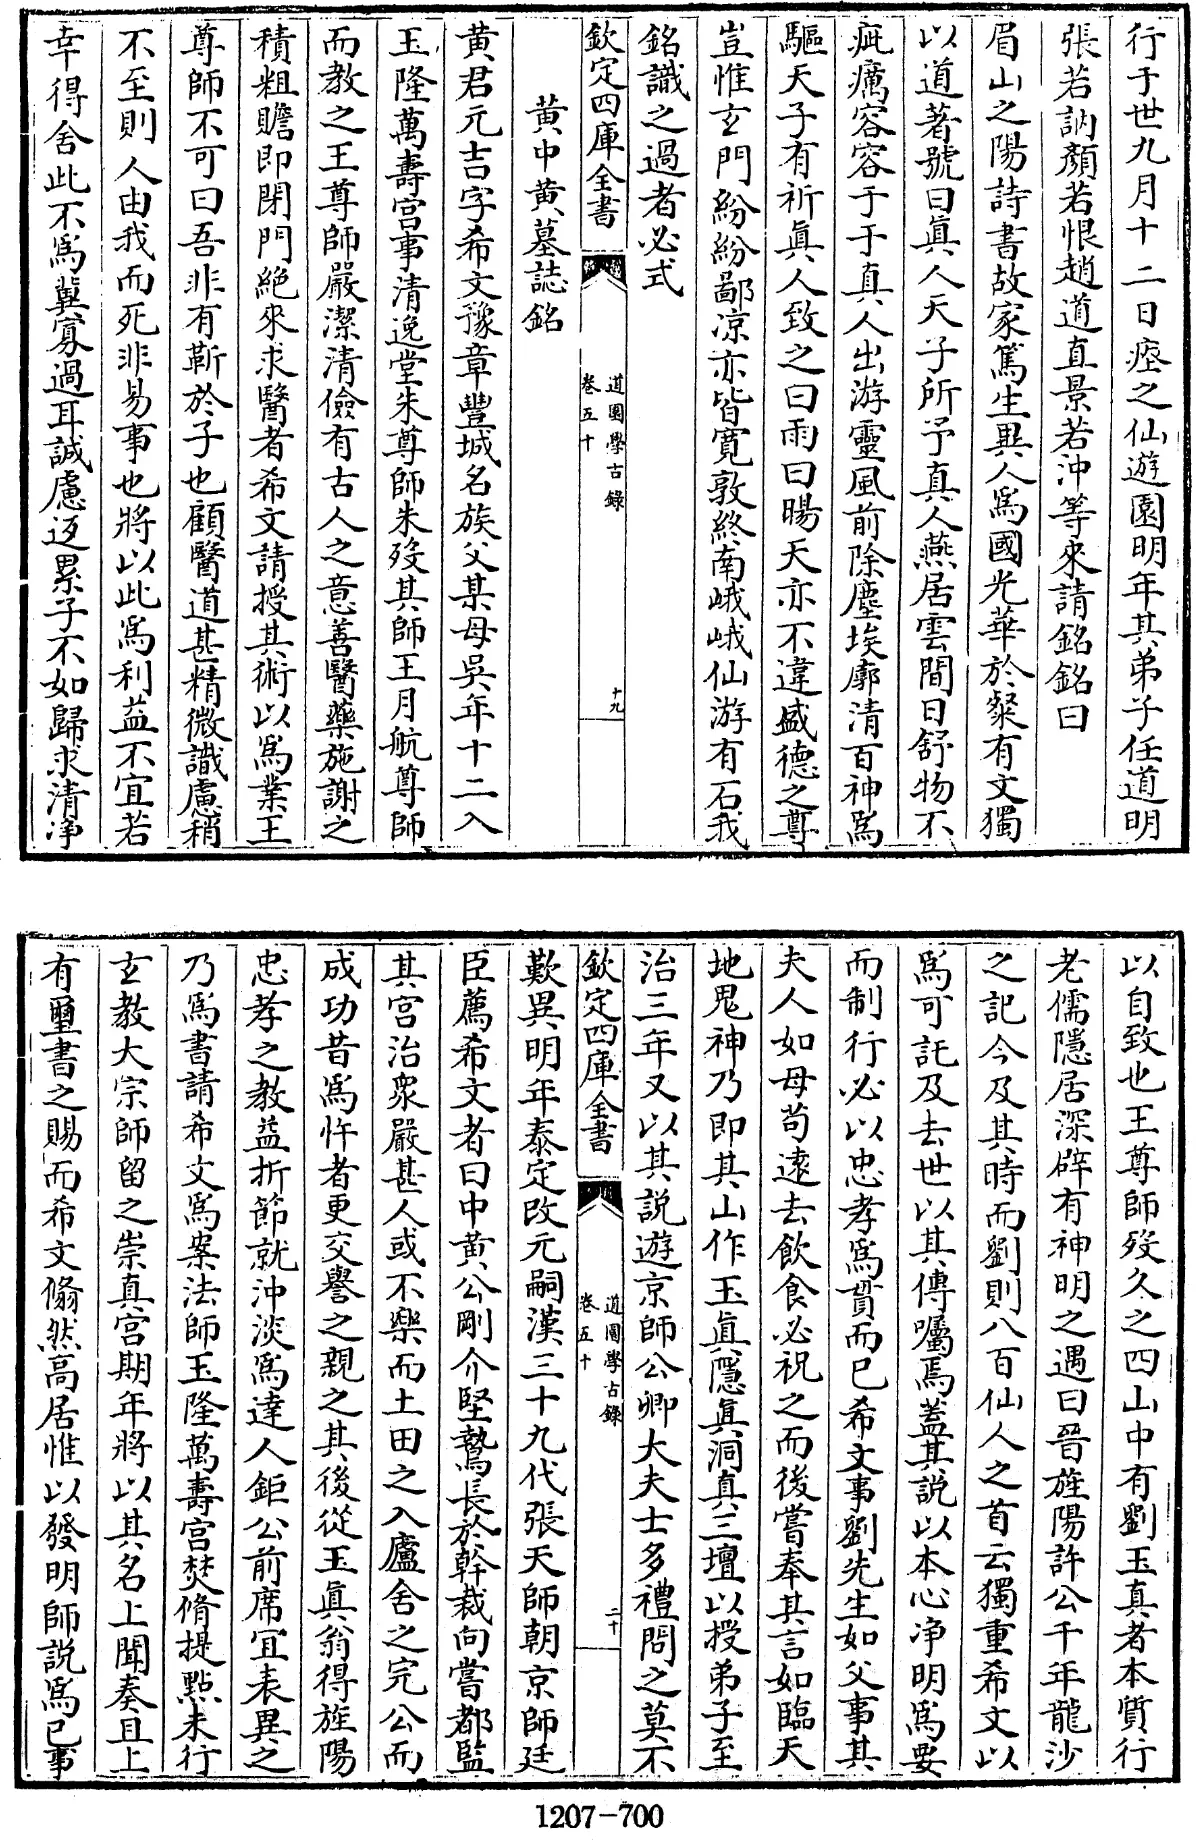 行于世九月十二日瘞之仙遊園明年其弟子任道明
張若訥顏若恨趙道直景若沖等來請銘銘曰
眉山之陽詩書故家篤生異人爲國光華於粲有文獨
以道著號曰真人天子所予真人燕居雲間日舒物不
疵癘容容于于真人出游靈風前除塵埃廓清百神爲
驅天子有祈真人致之曰雨曰暘天亦不違盛德之尊
豈惟玄門紛紛鄙凉亦皆寛敦終南峨峨仙游有石我
銘識之過者必式
欽定四庫全書
道園學古錄
卷五十
十九
黄中黄墓誌銘
黄君元吉字希文豫章豐城名族父某母吳年十二入
玉隆萬壽宫事清逸堂朱尊師朱歿其師王月航尊師
而教之王尊師嚴潔清儉有古人之意善醫藥施謝之
積粗贍即閉門絶來求醫者希文請授其術以爲業王
尊師不可曰吾非有靳於子也顧醫道甚精微識慮稍
不至則人由我而死非易事也將以此爲利益不宜若
幸得舍此不爲冀寡過耳誠慮返累子不如歸求清净
以自致也王尊師歿久之四山中有劉玉真者本質行
老儒隱居深辟有神明之遇曰晉旌陽許公千年龍沙
之記今及其時而劉則八百仙人之首云獨重希文以
爲可託及去世以其傳囑焉蓋其說以本心净明爲要
而制行必以忠孝爲貴而已希文事劉先生如父事其
夫人如母苟遠去飲食必祝之而後嘗奉其言如臨天
地鬼神乃即其山作玉真隱真洞真三壇以授弟子至
治三年又以其説遊京師公卿大夫士多禮問之莫不
欽定四庫全書
道園學古錄
卷五十
二十
歎異明年泰定改元嗣漢三十九代張天師朝京師廷
臣薦希文者曰中黄公剛介堅鷙長於幹裁向嘗都監
其宫治衆嚴甚人或不樂而土田之入廬舍之完公而
成功昔爲忤者更交譽之親之其後從玉真翁得旌陽
忠孝之教益折節就沖淡爲達人鉅公前席宜表異之
乃爲書請希文爲案法師玉隆萬壽宫焚脩提點未行
玄教大宗師留之崇真宫期年將以其名上聞奏且上
有璽書之賜而希文翛然高居惟以發明師說爲已事
1207-700